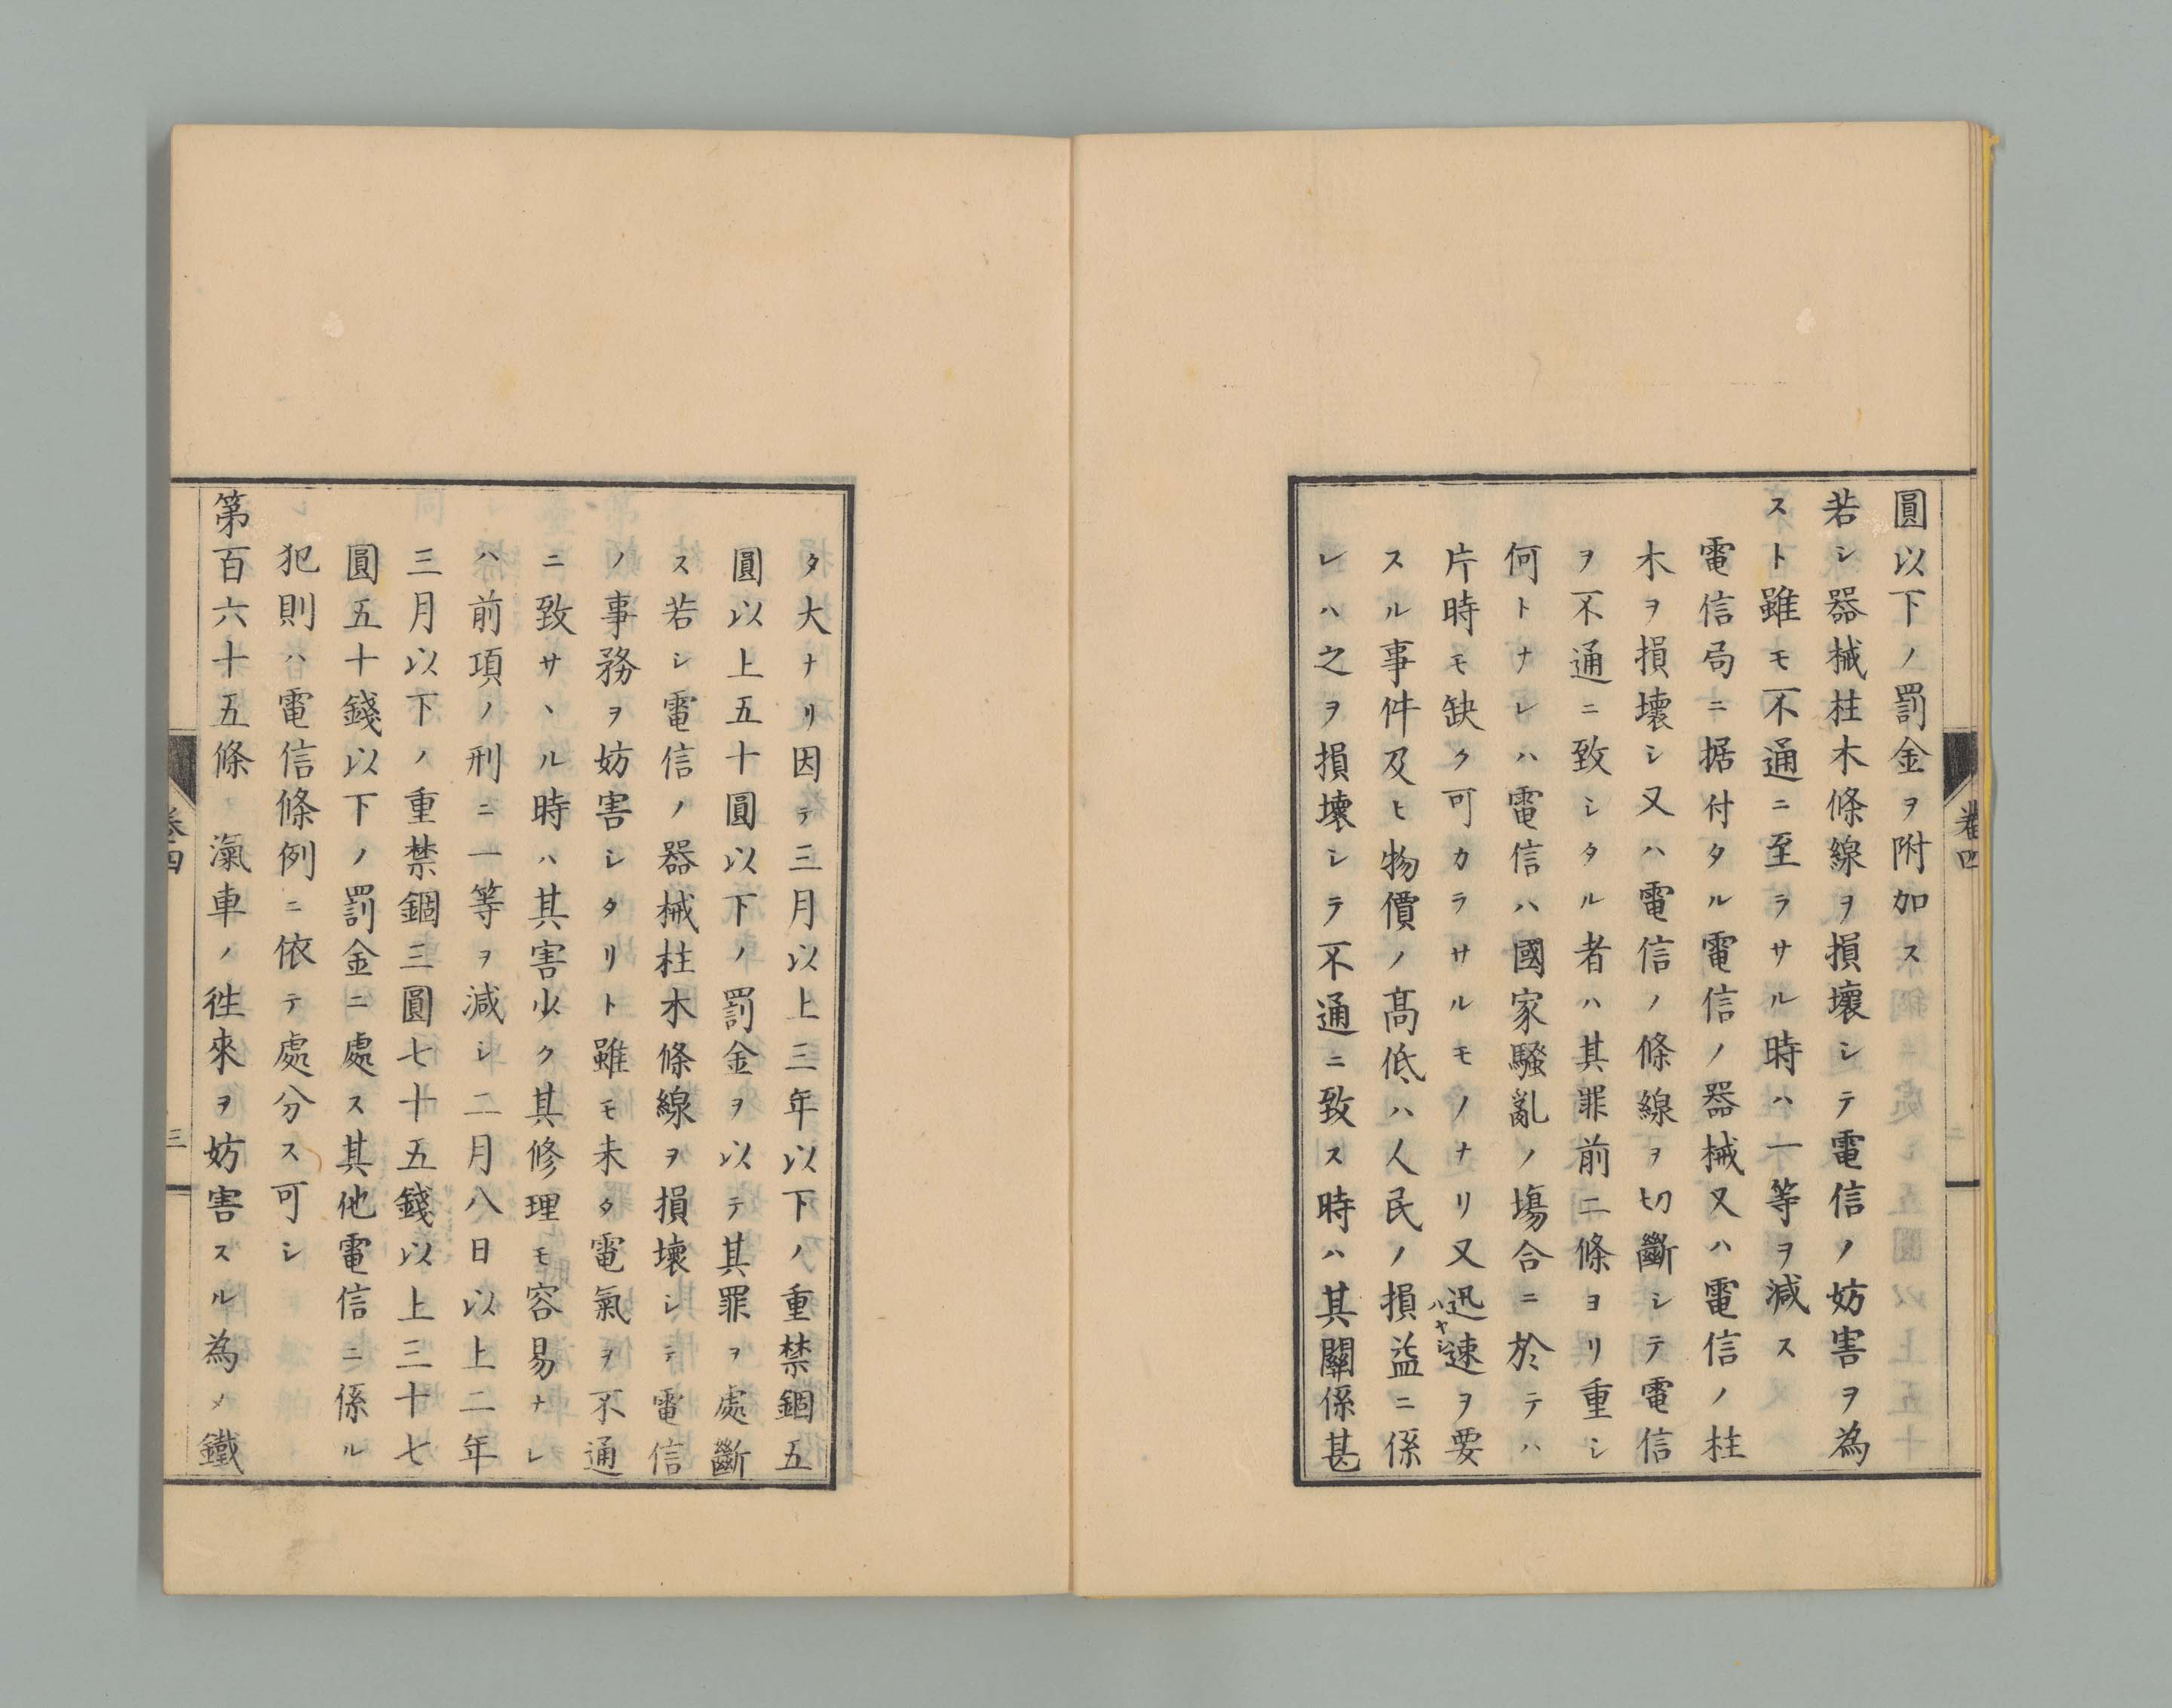 圓以下ノ罰金ヲ附加ス
若シ器械柱木條線ヲ損壞シテ電信ノ妨害ヲ為
スト雖モ不通ニ至ラサル時ハ一等ヲ減ス
電信局ニ据付タル電信ノ器械又ハ電信ノ柱
木ヲ損壞シ又ハ電信ノ條線ヲ切斷シテ電信
ヲ不通ニ致シタル者ハ其罪前二條ヨリ重シ
何トナレハ電信ハ國家騷亂ノ塲合ニ於テハ
片時モ缺ク可カラサルモノナリ又迅速ヲ要
ハヤシ
スル事件及ヒ物價ノ高低ハ人民ノ損益ニ係
レハ之ヲ損壞シテ不通ニ致ス時ハ其關係甚
卷四
タ大ナリ因テ三月以上三年以下ノ重禁錮五
圓以上五十圓以下ノ罰金ヲ以テ其罪ヲ處斷
ス若シ電信ノ器械柱木條線ヲ損壞シテ電信
ノ事務ヲ妨害シタリト雖モ未タ電氣ヲ不通
ニ致サヽル時ハ其害少ク其修理モ容易ナレ
ハ前項ノ刑ニ一等ヲ減シ二月八日以上二年
三月以下ノ重禁錮三圓七十五錢以上三十七
圓五十錢以下ノ罰金ニ處ス其他電信ニ係ル
犯則ハ電信條例ニ依テ處分ス可シ
第百六十五條 瀛車ノ徃來ヲ妨害スル為メ鐵
卷四
三